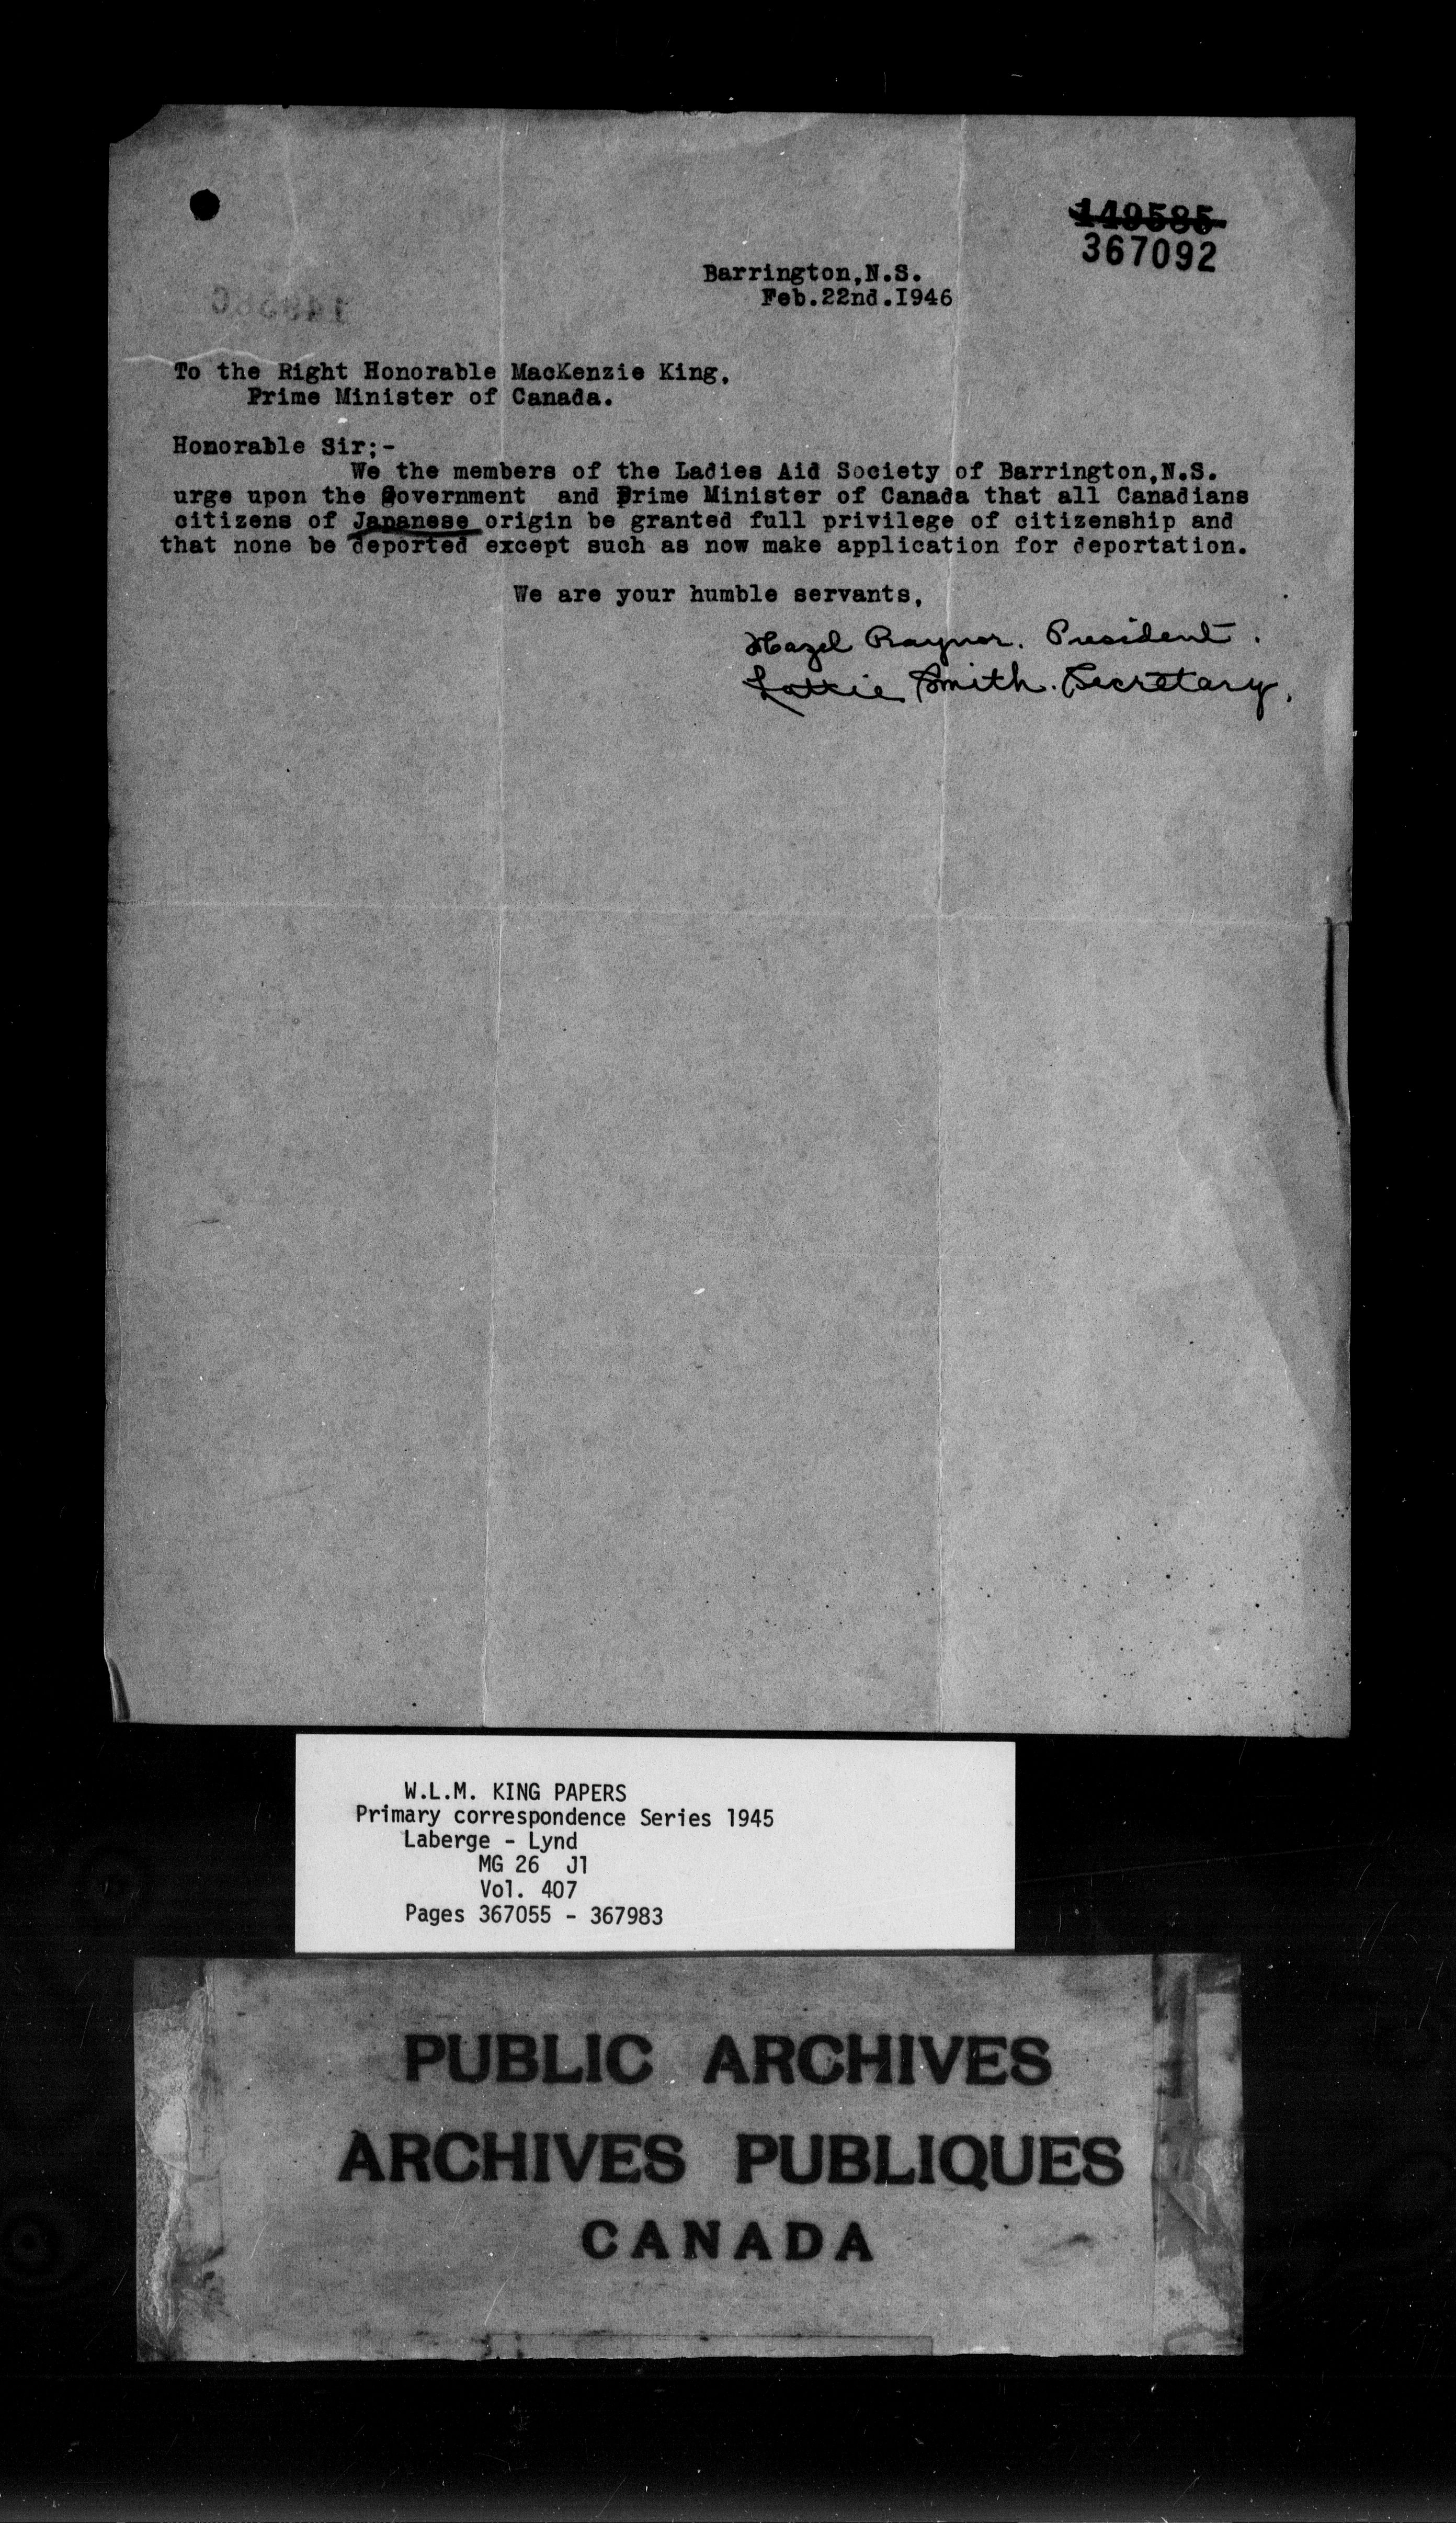 149585
367092
Barrington,N.S.
Feb.22nd.I946
To the Right Honorable MacKenzie King,
Prime Minister of Canada.
Honorable Sir;-
We the members of the Ladies Aid Society of Barrington,N.S.
urge upon the Government and Prime Minister of Canada that all Canadians
citizens of Japanese origin be granted full privilege of citizenship and
that none be deported except such as now make application for deportation.
We are your humble servants,
Hazel Raynor. President.
Lottie Smith. Secretary.
W.L.M. KING PAPERS
Primary correspondence Series 1945
Laberge - Lynd
MG 26 J1
Vol. 407
Pages 367055 - 367983
PUBLIC ARCHIVES
ARCHIVES PUBLIQUES
CANADA